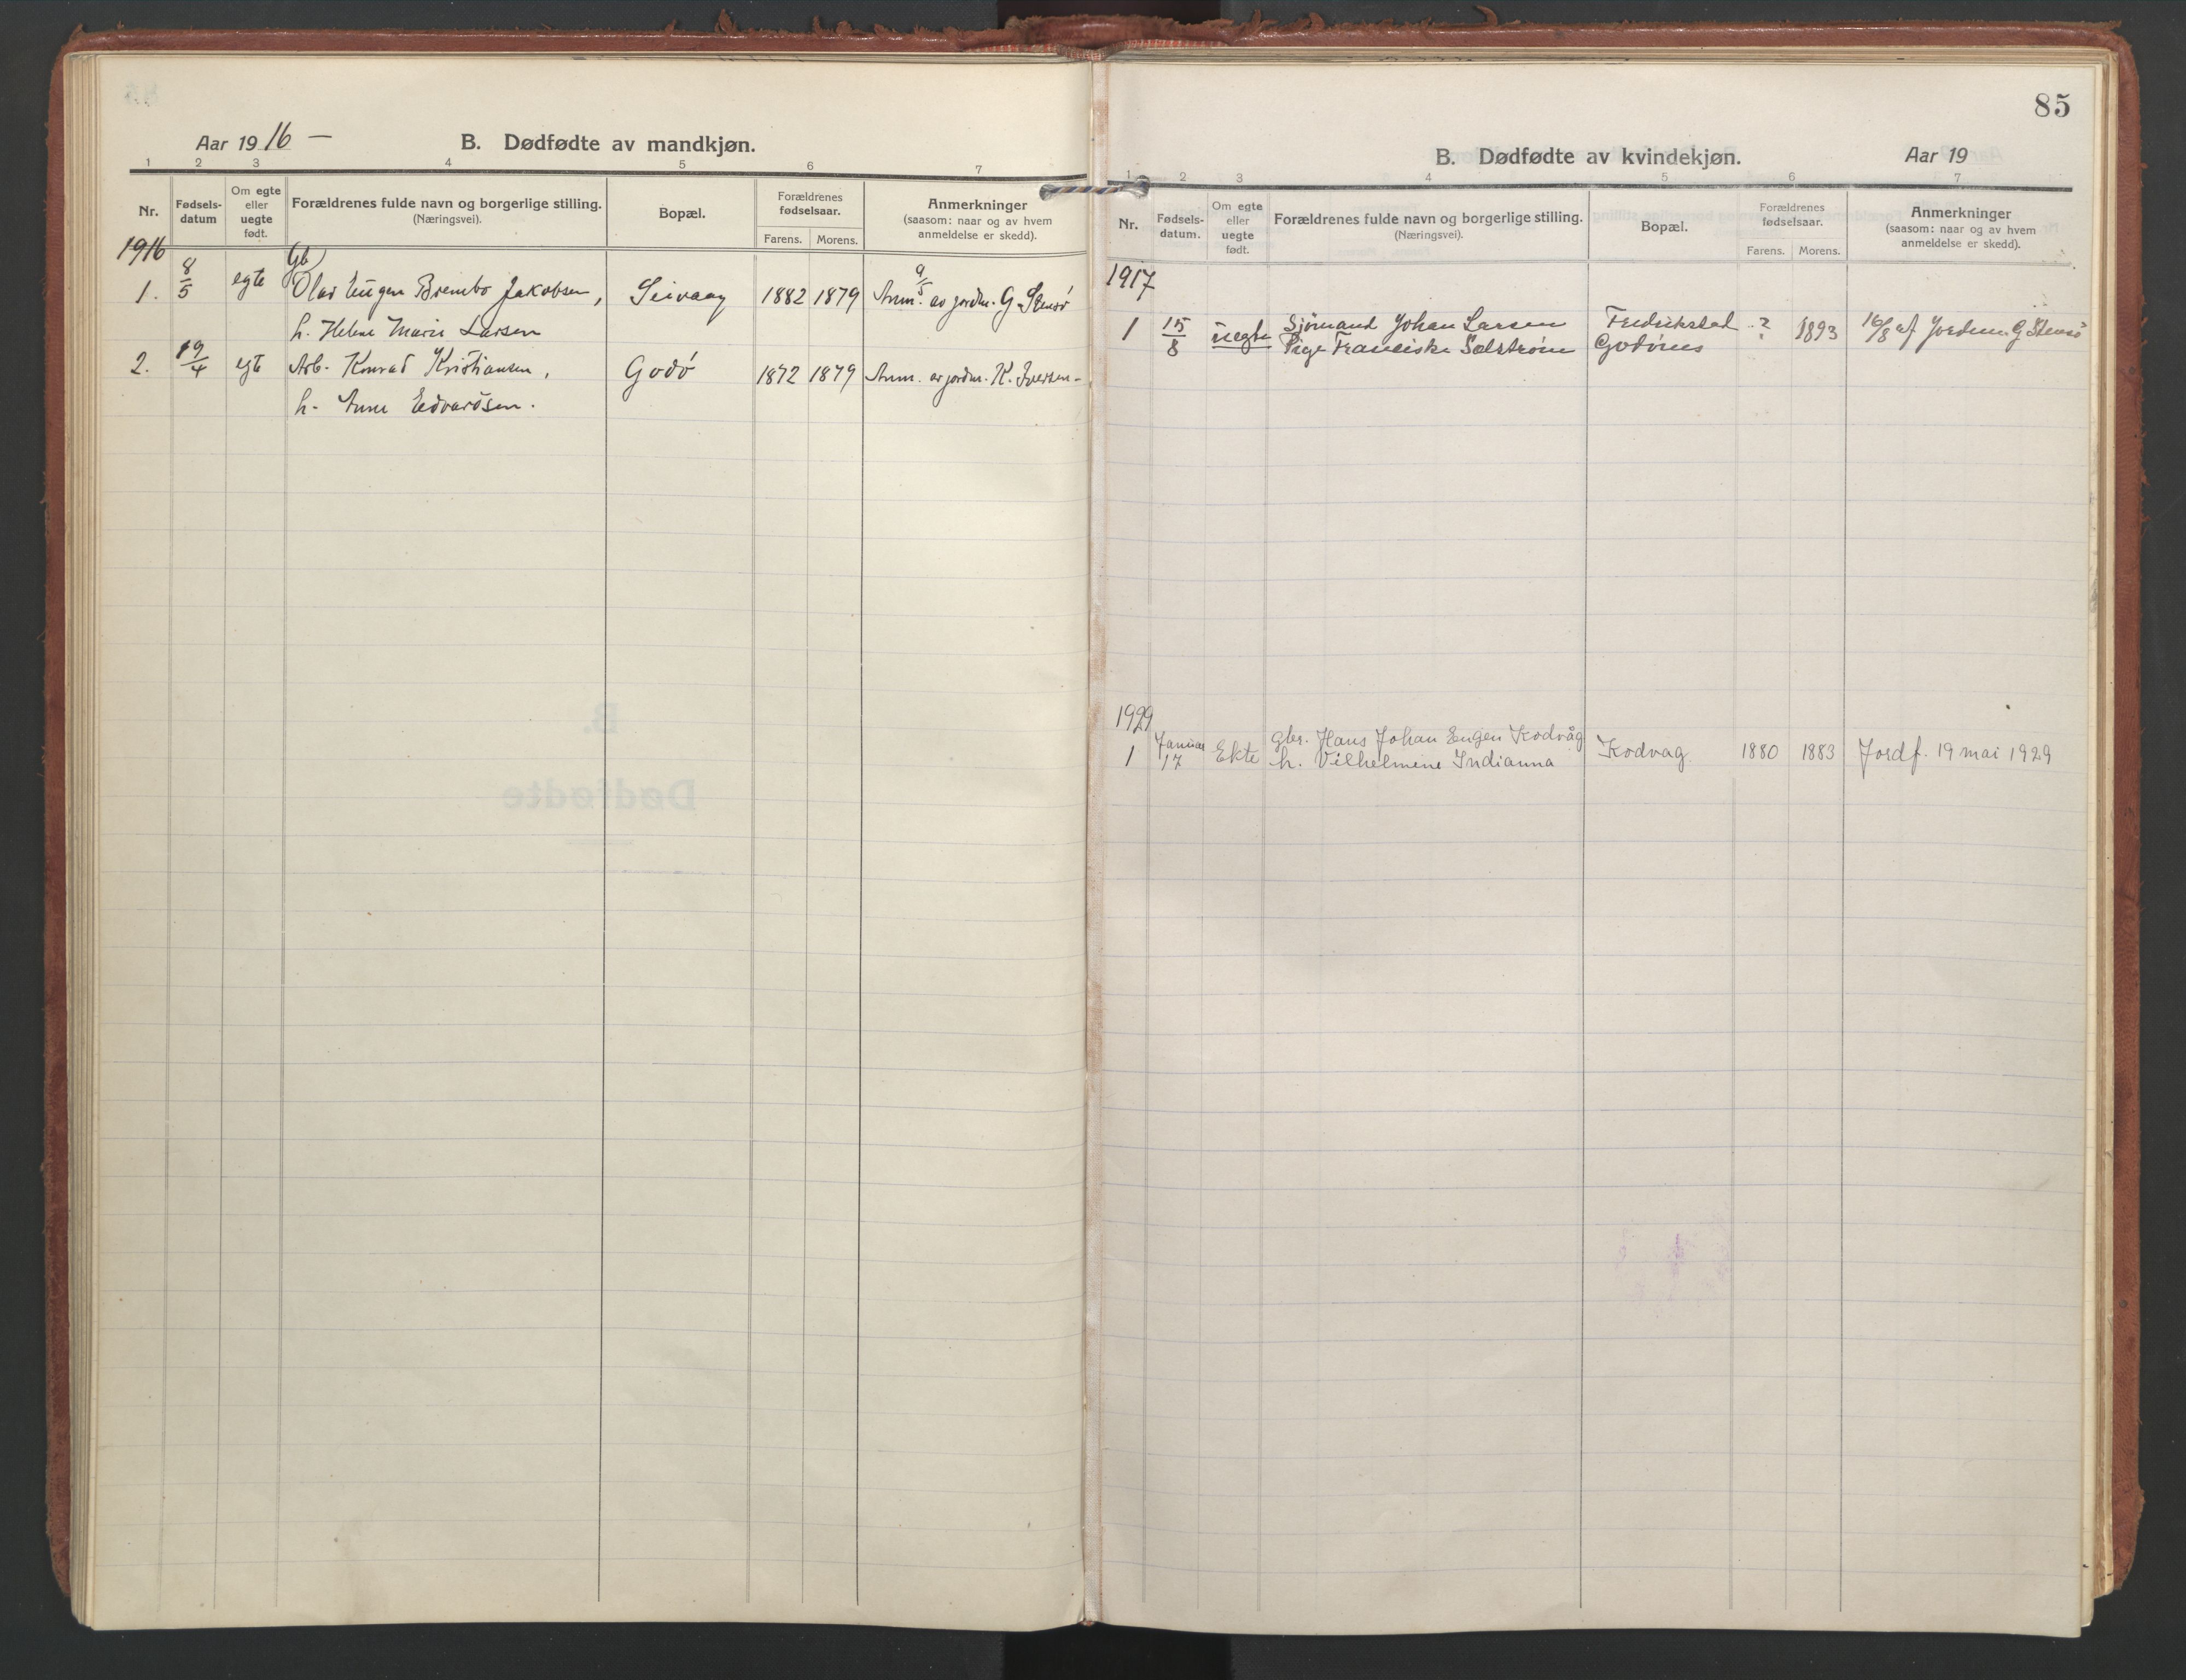 Aar 1916 —
B. Dødfødte av mandkjøn.
1 2 3 4 5 6 7
Nr.
Fødsels-
datum
Om egte
eller
uegte
født.
Forældrenes fulde navn og borgerlige stilling.
(Næringsvei).
Bopæl.
Forældrenes
fødselsaar.
Farens. Morens.
Anmerkninger
(saasom: naar og av hvem
anmeldelse er skedd).
1916
Gb
1. 8/5 egte Olav Eugen Brembo Jakobsen, Seivaag 1882 1879 Anm. 9/5 av jordm. G. Stensø
h. Helene Marie Larsen
2. 19/4 egte Arb. Konrad Kristiansen, Godø 1872 1879 Anm. av jordm. K. Iversen -
h. Anne Edvardsen.
85
B. Dødfødte av kvindekjøn.
Aar 19
1 2 3 4 5 6 7
Nr.
Fødsels-
datum.
Om egte
eller
uegte
født.
Forældrenes fulde navn og borgerlige stilling.
(Næringsvei).
Bopæl.
Forældrenes
fødselsaar.
Farens. Morens.
Anmerkninger
(saasom: naar og av hvem
anmeldelse er skedd).
1917
1 15/8 uegte Sjømand Johan Larsen Fredrikstad ? 1893 16/8 af Jordm. G. Stensø
Pige Franciska Solstrøm Godønes
1929
1 Januar 17 Ekte gbr. Hans Johan Eugen Kodvåg Kodvag 1880 1883 Jordf. 19 mai 1929
h. Vilhelmene Indianna